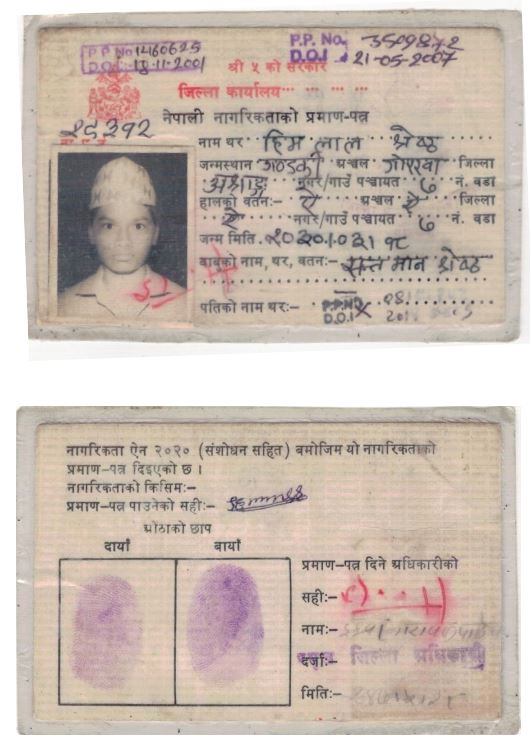 P.P No 1460625
D.O.I 18-11-2001
P.P. No. 3509872
D.O.I 21-05-2007
श्री ५ को सरकार
जिल्ला कार्यालय
नेपाली नागरिकताको प्रमाण-पत्र
नाम थर हिम लाल श्रेष्ठ
जन्मस्थान गण्डकी अञ्चल गोरखा जिल्ला
नगर/गाउँ पञ्चायत ७ नं. वडा
हालको वतन:- ऐ अञ्चल ऐ जिल्ला
ऐ नगर/गाउँ पञ्चायत ७ नं. वडा
जन्म मिति
बाबुको नाम, थर, वतन:- मान श्रेष्ठ
पतिको नाम थर:-
P.P.NO
D.O.I
नागरिकता ऐन २०२० (संशोधन सहित) बमोजिम यो नागरिकताको
प्रमाण-पत्र दिइएको छ ।
नागरिकताको किसिम:-
प्रमाण-पत्र पाउनेको सही:-
औंठाको छाप
दायाँ बायाँ
प्रमाण-पत्र दिने अधिकारीको
सही:-
नाम:-
दर्जा:- जिल्ला अधिकारी
मिति:-